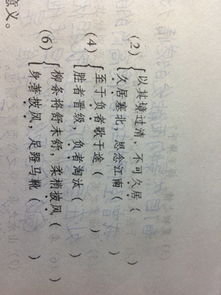 (2){以其境过清,不可久居( )
久居塞北,思念江南( )
(4){至于负者歌于途( )
胜者晋级,负者淘汰( )
(6){柳条将舒未舒,柔梢披风( )
身着披风、足蹬马靴( )
意义。